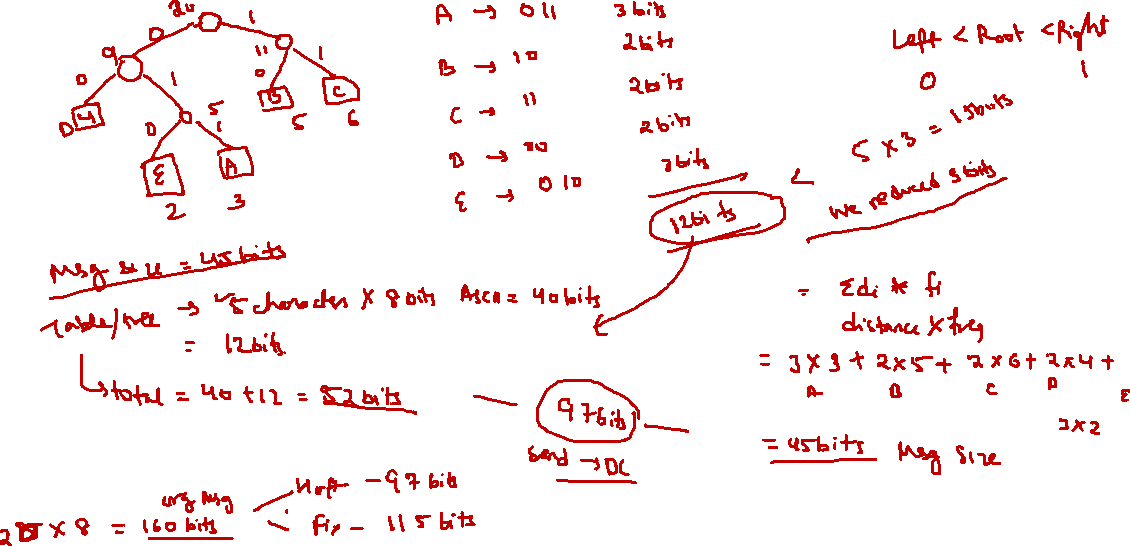 20
0 1
9 11
0 1 0 1
D 4 5 B C
0 1 5 6
E A
2 3
A → 011 3bits
B → 10 2bits
C → 11 2bits
D → 00 2bits
E → 010 3bits
12bits
Left < Root < Right
0 1
5 x 3 = 15bits
<
we reduced 3bits
Msg size = 45bits
Table/tree → 5 character x 8bits ASCII = 40bits
= 12bits
total = 40 + 12 = 52bits
97bits
Send → DC
= Σdi * fi
distance x freq
= 3x3 + 2x5 + 2x6 + 2x4 +
A B C D E
3x2
= 45bits Msg Size
org Msg
Huff - 97bits
20 x 8 = 160bits
Fix - 115bits